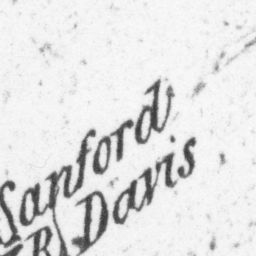 Sanford
Davis